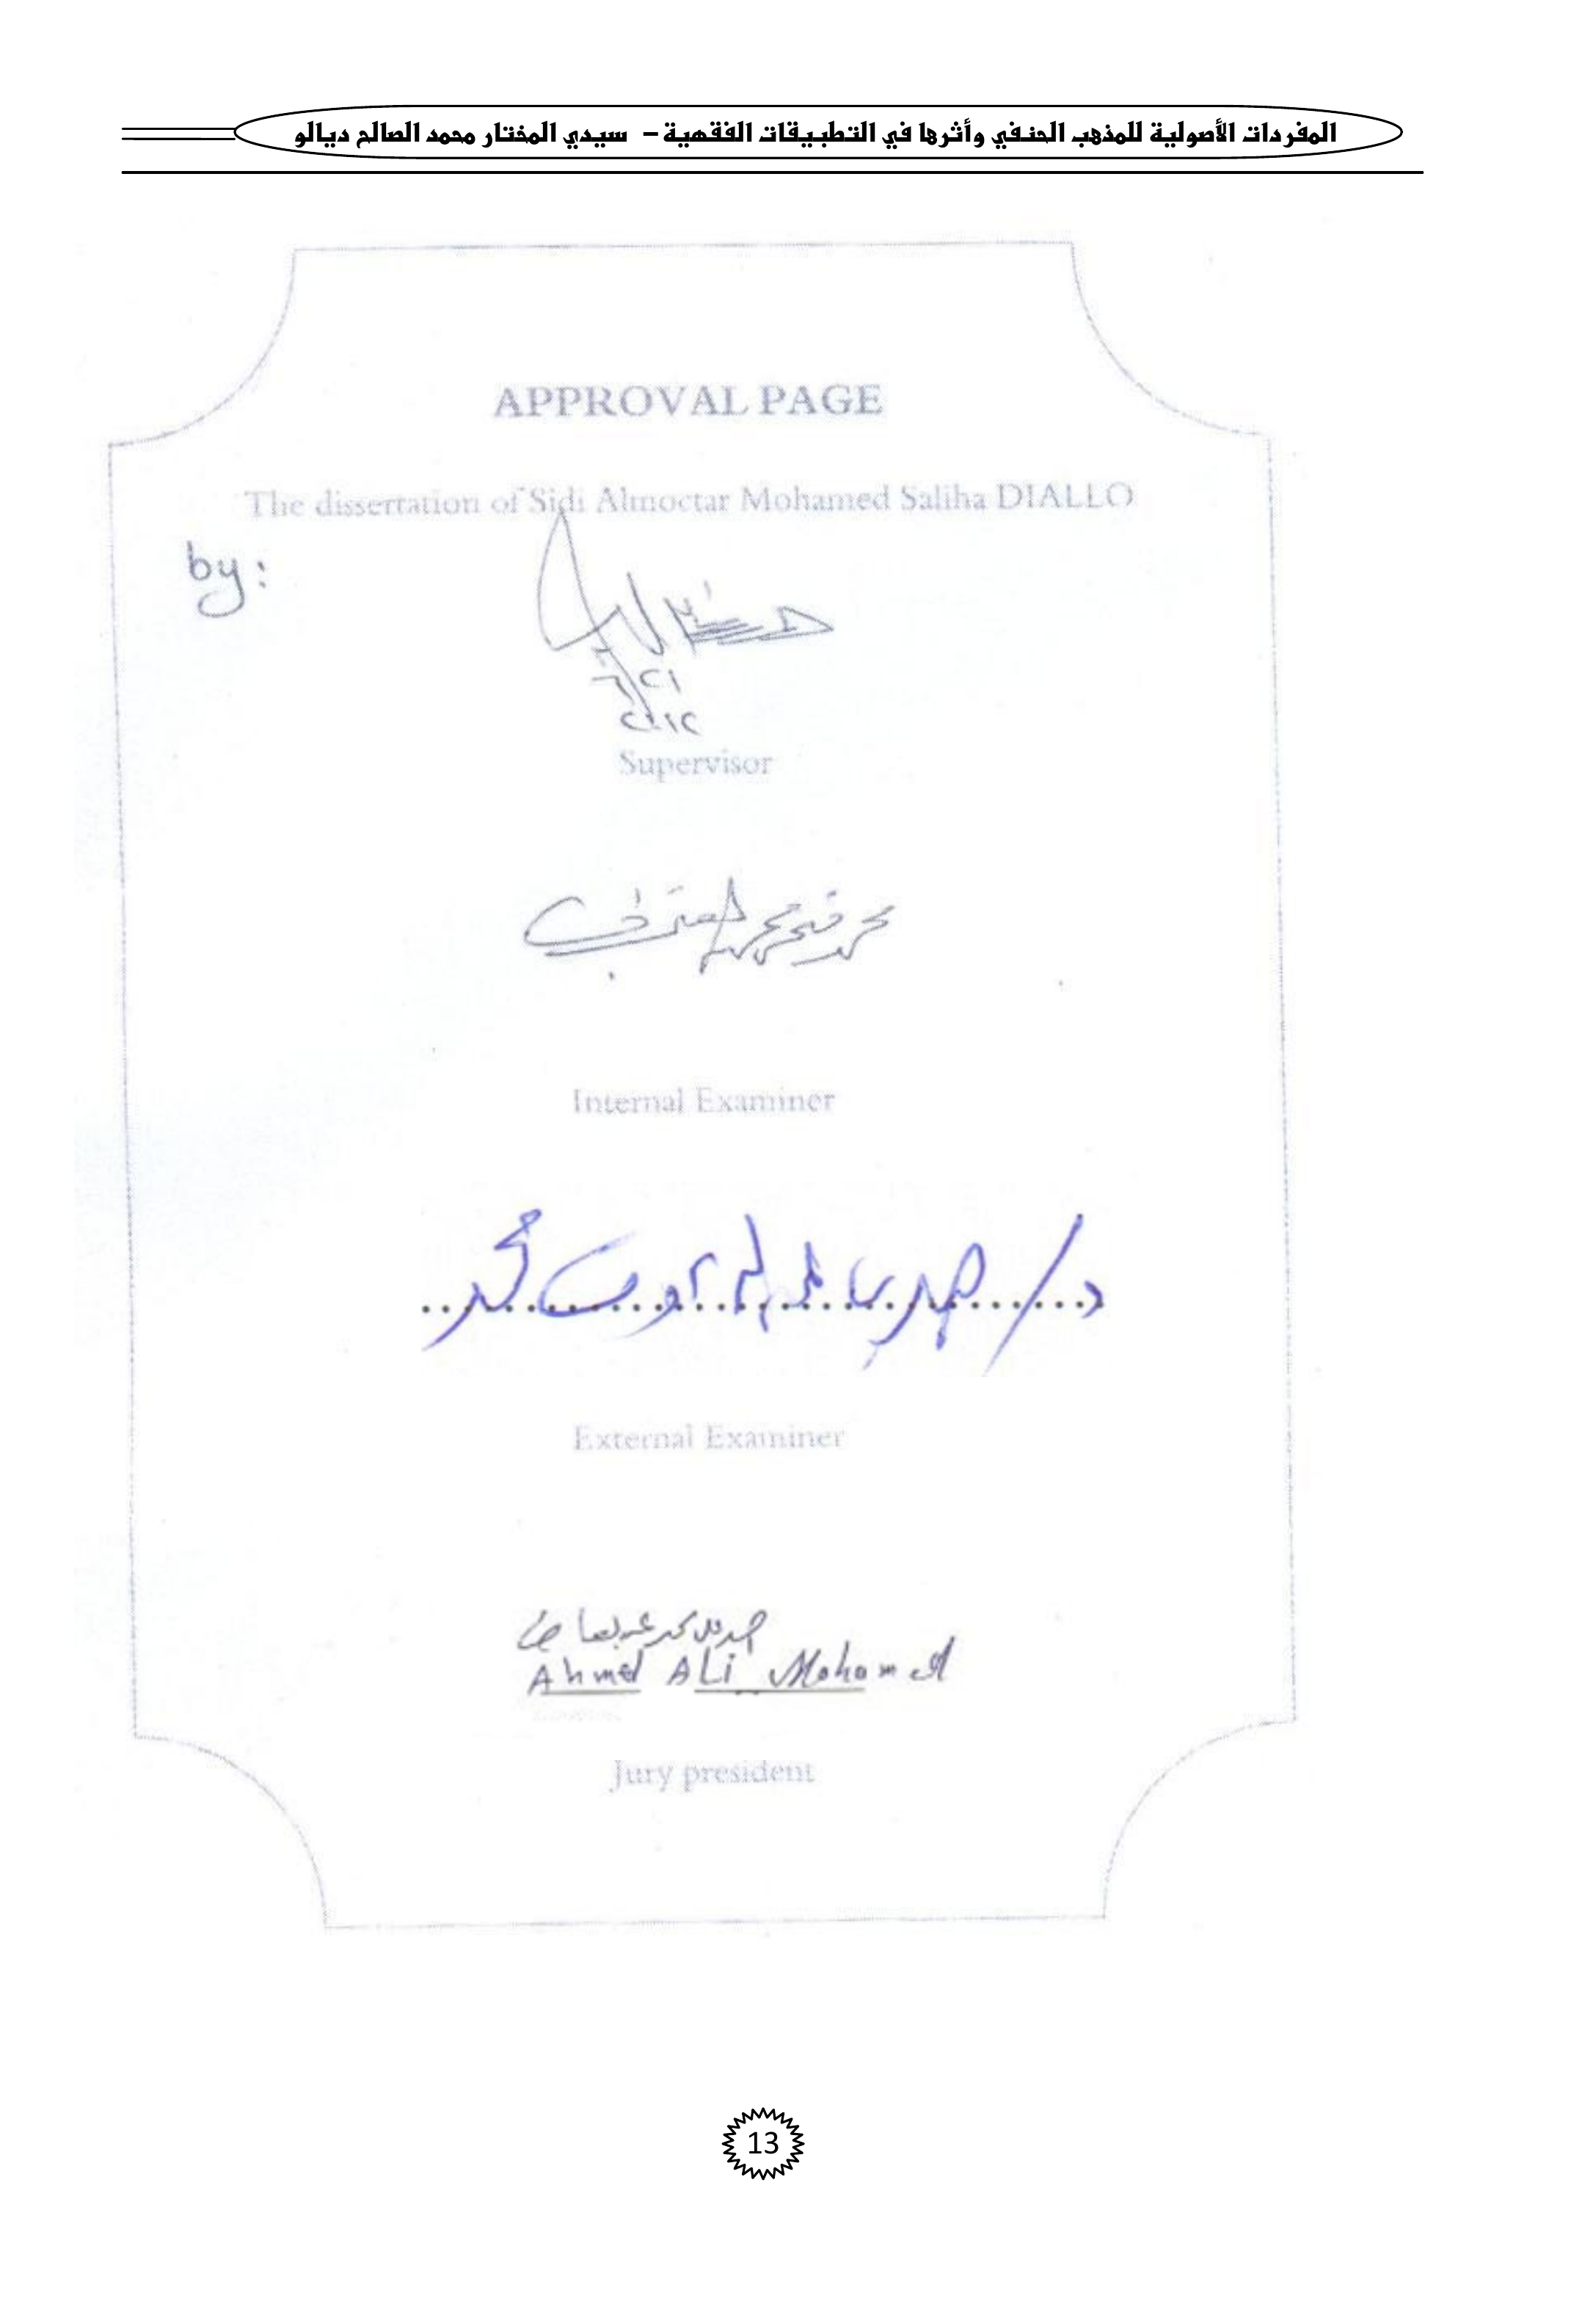 المفردات الأصولية للمذهب الحنفي وأثرها في التطبيقات الفقهية – سيدي المختار محمد الصالح ديالو
APPROVAL PAGE
The dissertation of Sidi Almoctar Mohamed Saliha DIALLO
by:
٦/٢١
٢٠١٢
Supervisor
Internal Examiner
د/ محمد
External Examiner
Ahmed ALi Mohamed
Jury president
13